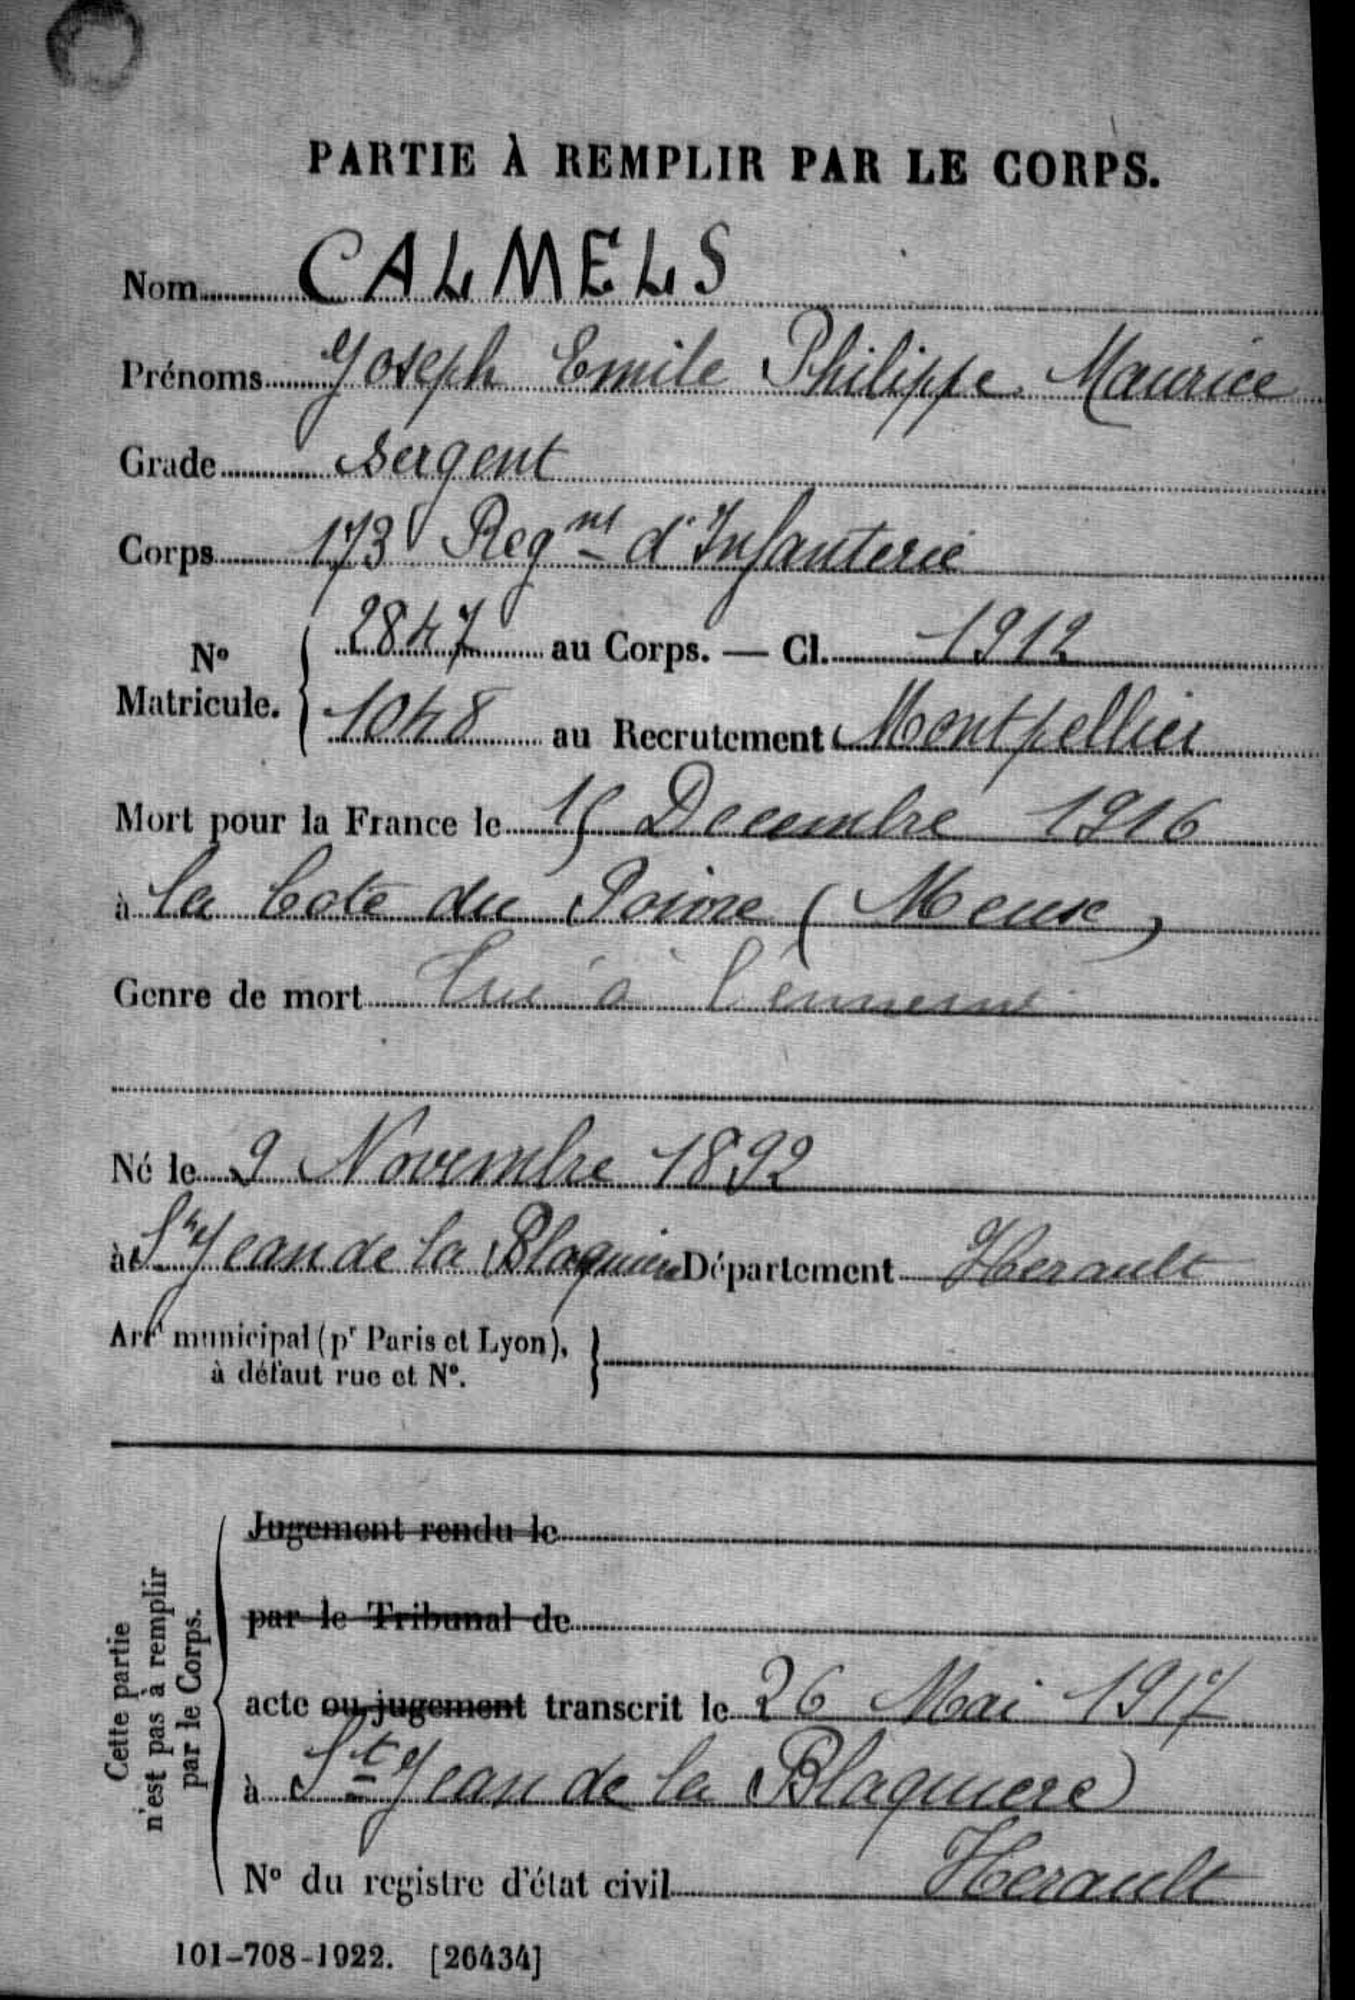 PARTIE À REMPLIR PAR LE CORPS.
Nom CALMELS
Prénoms Joseph Emile Philippe Maurice
Grade Sergent
Corps 173e Regnt d'Infanterie
No Matricule. 2847 au Corps. — Cl. 1912
1048 au Recrutement Montpellier
Mort pour la France le 15 Decembre 1916
à la Cote du Poivre (Meuse)
Genre de mort Tué à l'ennemi
Né le 9 Novembre 1892
à St Jean de la Blaquiere Département Herault
Arrt municipal (pr Paris et Lyon),
à défaut rue et No.
Cette partie
n'est pas à remplir
par le Corps.
Jugement rendu le
par le Tribunal de
acte ou jugement transcrit le 26 Mai 1917
à St Jean de la Blaquiere
No du registre d'état civil Herault
101-708-1922. [26434]